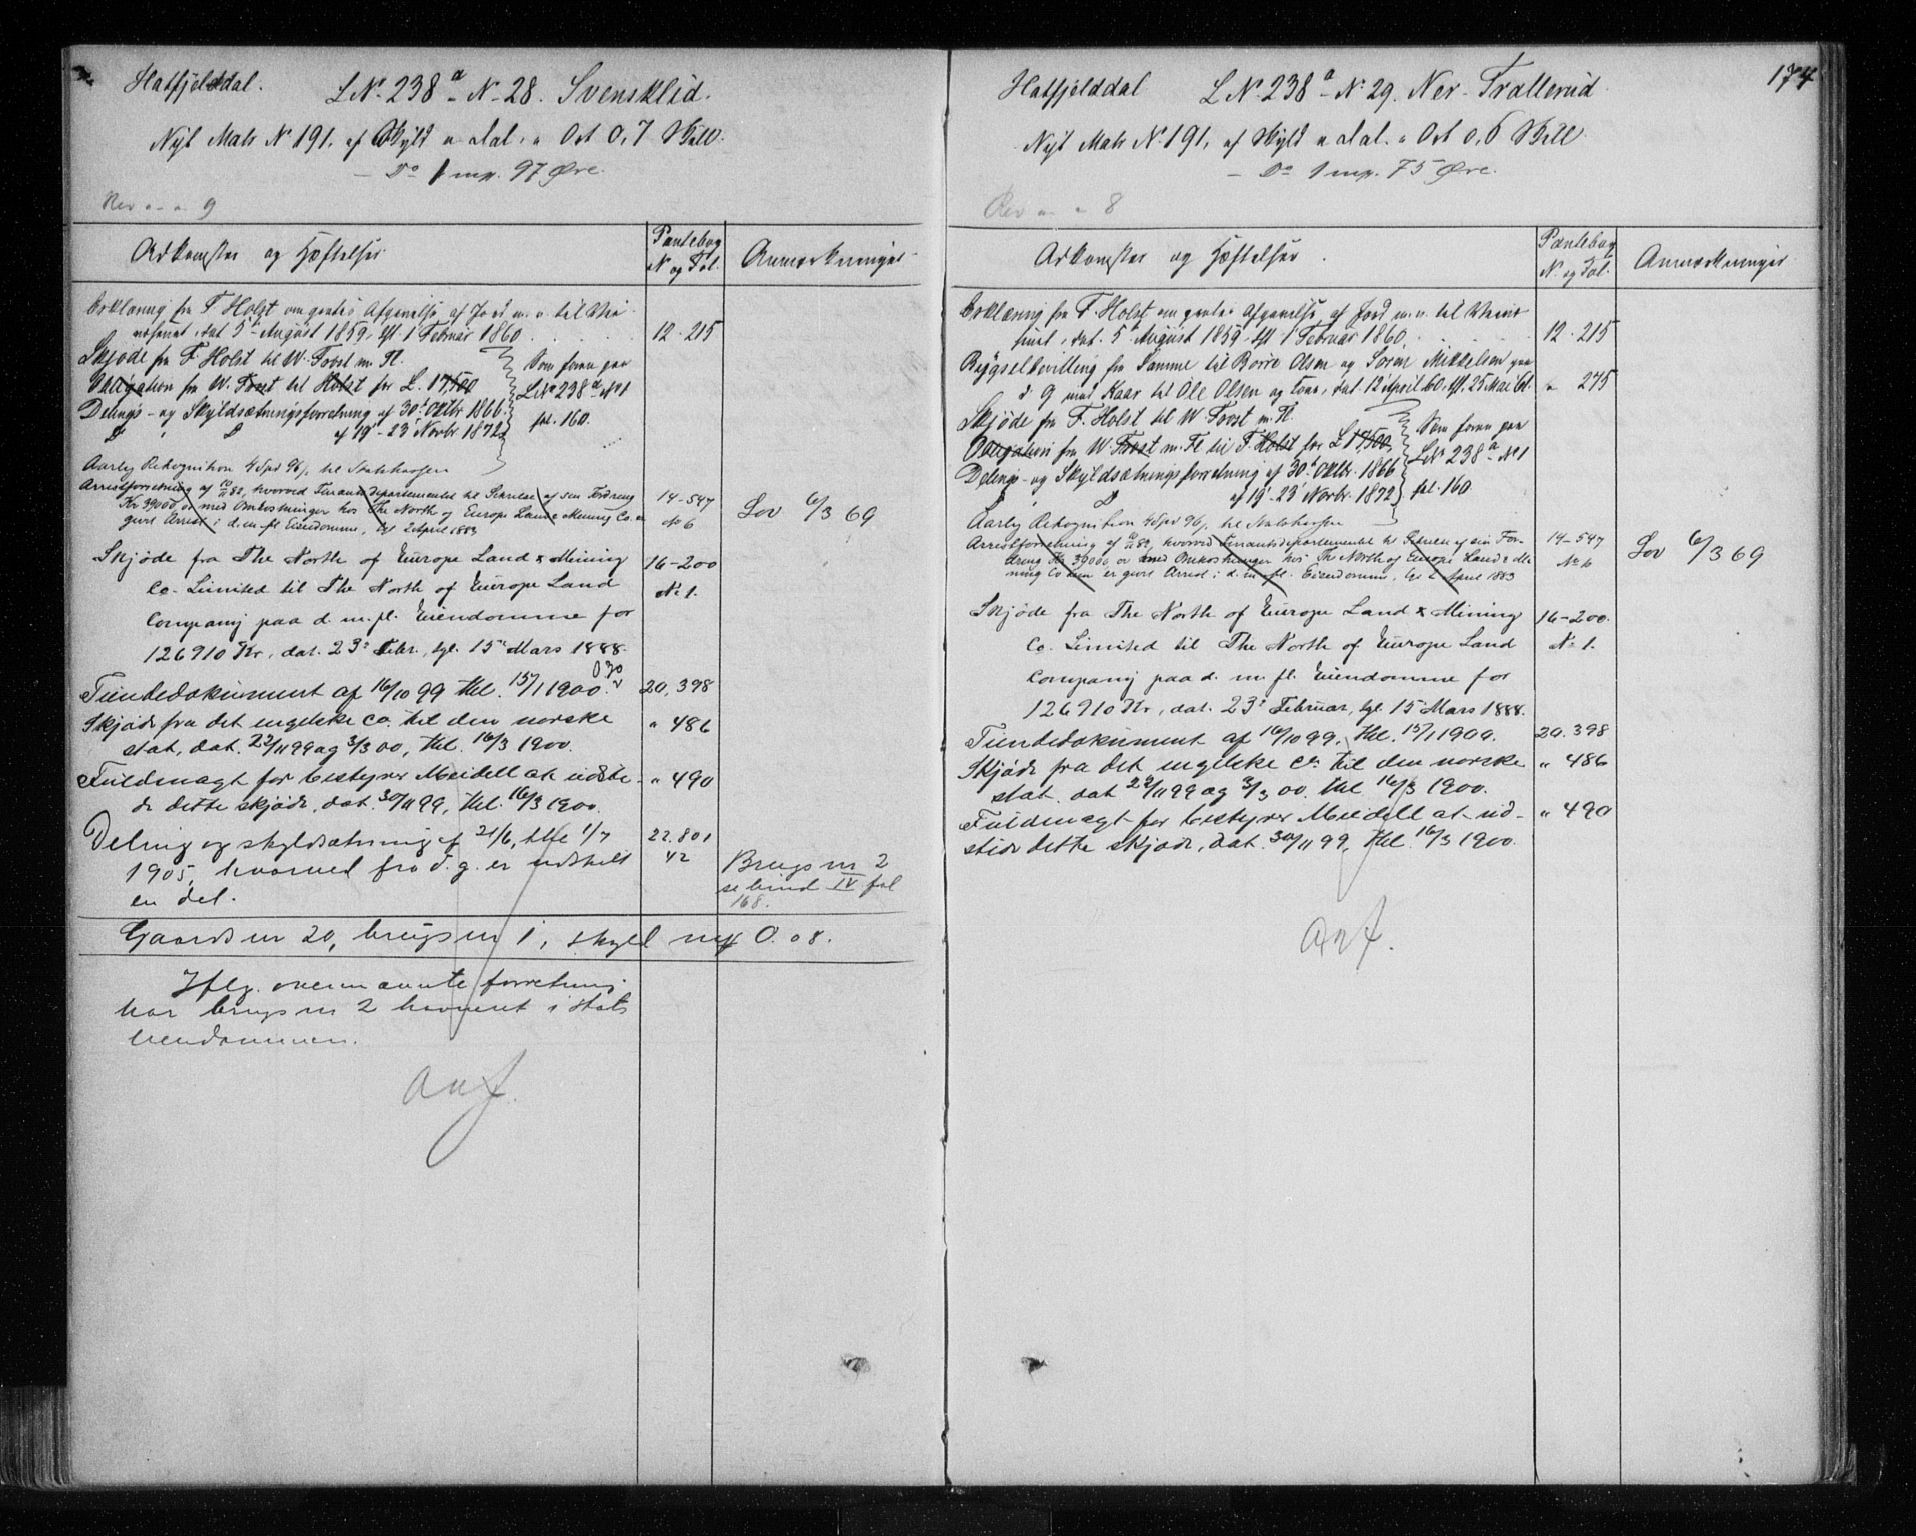 Hatfjelddal. LN. 238 a - N. 28. Svensklid.
Nyt Matr N. 191. af Skyld " Dal. " Ort 0,7 Skill.
— Do 1 mrk. 97 Øre.
Rev " - " 9
Adkomster og Hæftelser
Pantebog
N og Fol.
Anmærkninger
Erklæring fra F Holst om gratis Afgivelse af Jord m. v. til
dat 5te August 1859, tgl. 1 Februar 1860
12 - 215
Skjøde fra F. Holst til W. Foost m. Fl.
Obligation fra W. Foost til Holst for £. 17,500
Delings- og Skyldsætningsforretning af 30te Oktbr 1866.
D " D af 19 - 23 Novbr. 1872
Som foran paa
LN 238 a N 1
fol. 160.
Aarlig Rekognition 4 Spd 96 s. til Statskassen
Arrestforretning af 82, hvorved Finantsdepartementet til Sikkerhed af sin Fordring
Kr 39000,00 med Omkostninger hos The North of Europe Land & Mining Co. er
gjort Arrest i d. m. fl. Eiendomme, tgl 2 April 1883
14 - 547
No 6
Lov 6/3 69
Skjøde fra The North of Europe Land & Mining
Co. Limited til The North of Europe Land
Company paa d. m. fl. Eiendomme for
126910 Kr, dat. 23de Febr., tgl. 15de Mars 1888.
16 - 200
No 1.
Tiendedokument af 16/10 99 thl. 15/1 1900.
20. 398
Skjøde fra det engelske Co. til den norske
stat, dat. 22/11 99 og 3/3 00, thl. 16/3 1900.
" 486
Fuldmagt for bestyrer Meidell at udste-
de dette skjøde, dat. 30/11 99, thl. 16/3 1900.
" 490
Deling og skyldsætning af 21/6, thl 1/7
1905, hvorved fra d. g. er udskilt
en del.
22. 801
42
Brugs nr 2
se bind IV fol
168.
Gaards nr 20, brugs nr 1, skyld mrk 0.08.
Iflg. ovennævnte forretning
har brugs nr 2 havneret i stats
eiendommen.
Anf.
174
Hatfjelddal LN. 238 a - N. 29. Ner-Trallerud
Nyt Matr N. 191, af Skyld " Dal. " Ort 0,6 Skill.
— Do 1 mrk. 75 Øre.
Rev " - " 8
Adkomster og Hæftelser
Pantebog
N. og Fol.
Anmærkninger
Erklæring fra F. Holst om gratis Afgivelse af Jord m. v. til
dat. 5te August 1859 tgl 1 Februar 1860.
12 - 215
Bygselbevilling fra Samme til Børre Olsen og Søren Mikkelsen paa
d G mod Kaar til Ole Olsen og Kone, dat. 12 April 60, tgl. 25 Mai 61.
" 275
Skjøde fra F. Holst til W. Foost m. Fl.
Obligation fra W. Foost m. Fl til F. Holst for £ 17,500,
Delings- og Skyldsætningsforretning af 30te Oktbr. 1866
D " D af 19 - 23 Novbr. 1872
Som foran paa
LN 238 a N 1
fol. 160
Aarlig Rekognition 4 Spd 96 s. til Statskassen
Arrestforretning af 82, hvorved Finantsdepartementet til Sikkerhed af sin For-
dring Kr 39000,00 med Omkostninger hos The North of Europe Land & Mi-
ning Co er gjort Arrest i d. m. fl. Eiendomme, tgl 2 April 1883
14 - 547
No 6
Lov 6/3 69
Skjøde fra The North of Europe Land & Mining
Co. Limited til The North of Europe Land
Company paa d. m. fl. Eiendomme for
126910 Kr, dat. 23de Februar, tgl. 15de Mars 1888.
16 - 200.
No 1.
Tiendedokument af 16/10 99, thl. 15/1 1900.
20. 398
Skjøde fra det engelske Co. til den norske
stat. dat 22/11 99 og 3/3 00. thl 16/3 1900.
" 486
Fuldmagt for bestyrer Meidell at ud-
stede dette skjøde, dat. 30/11 99, thl. 16/3 1900.
" 490
Anf.